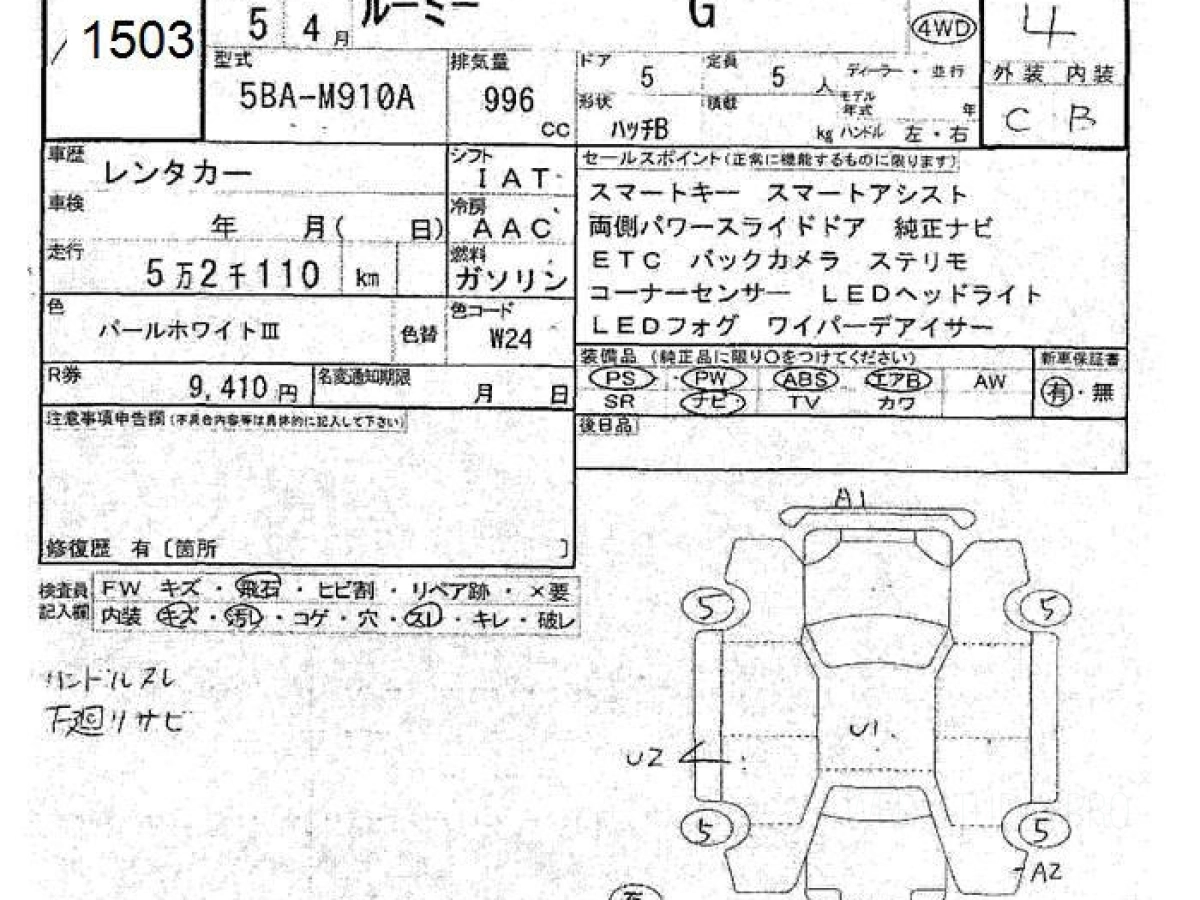 1503 5 4月 ルーミー G 4WD 4
型式 5BA-M910A 排気量 996 cc
ドア 5 定員 5 人 ディーラー・並行 外装 内装
形状 ハッチB 積載 kg モデル年式 年 ハンドル 左・右 C B
車歴 レンタカー シフト IAT
車検 年 月( 日) 冷房 AAC
走行 5万2千110 km 燃料 ガソリン
色 パールホワイトⅢ 色替 色コード W24
R券 9,410円 名変通知期限 月 日
セールスポイント(正常に機能するものに限ります)
スマートキー スマートアシスト
両側パワースライドドア 純正ナビ
ETC バックカメラ ステリモ
コーナーセンサー LEDヘッドライト
LEDフォグ ワイパーデアイサー
装備品 (純正品に限り○をつけてください) 新車保証書
PS PW ABS エアB AW 有・無
SR ナビ TV カワ
後日品
注意事項申告欄(不具合内容等は具体的に記入して下さい)
修復歴 有〔箇所 〕
検査員記入欄 FW キズ・飛石・ヒビ割・リペア跡・×要
内装 キズ・汚レ・コゲ・穴・スレ・キレ・破レ
ハンドルスレ
下廻リサビ
A1
5 5
U1
U2
5 5
A2